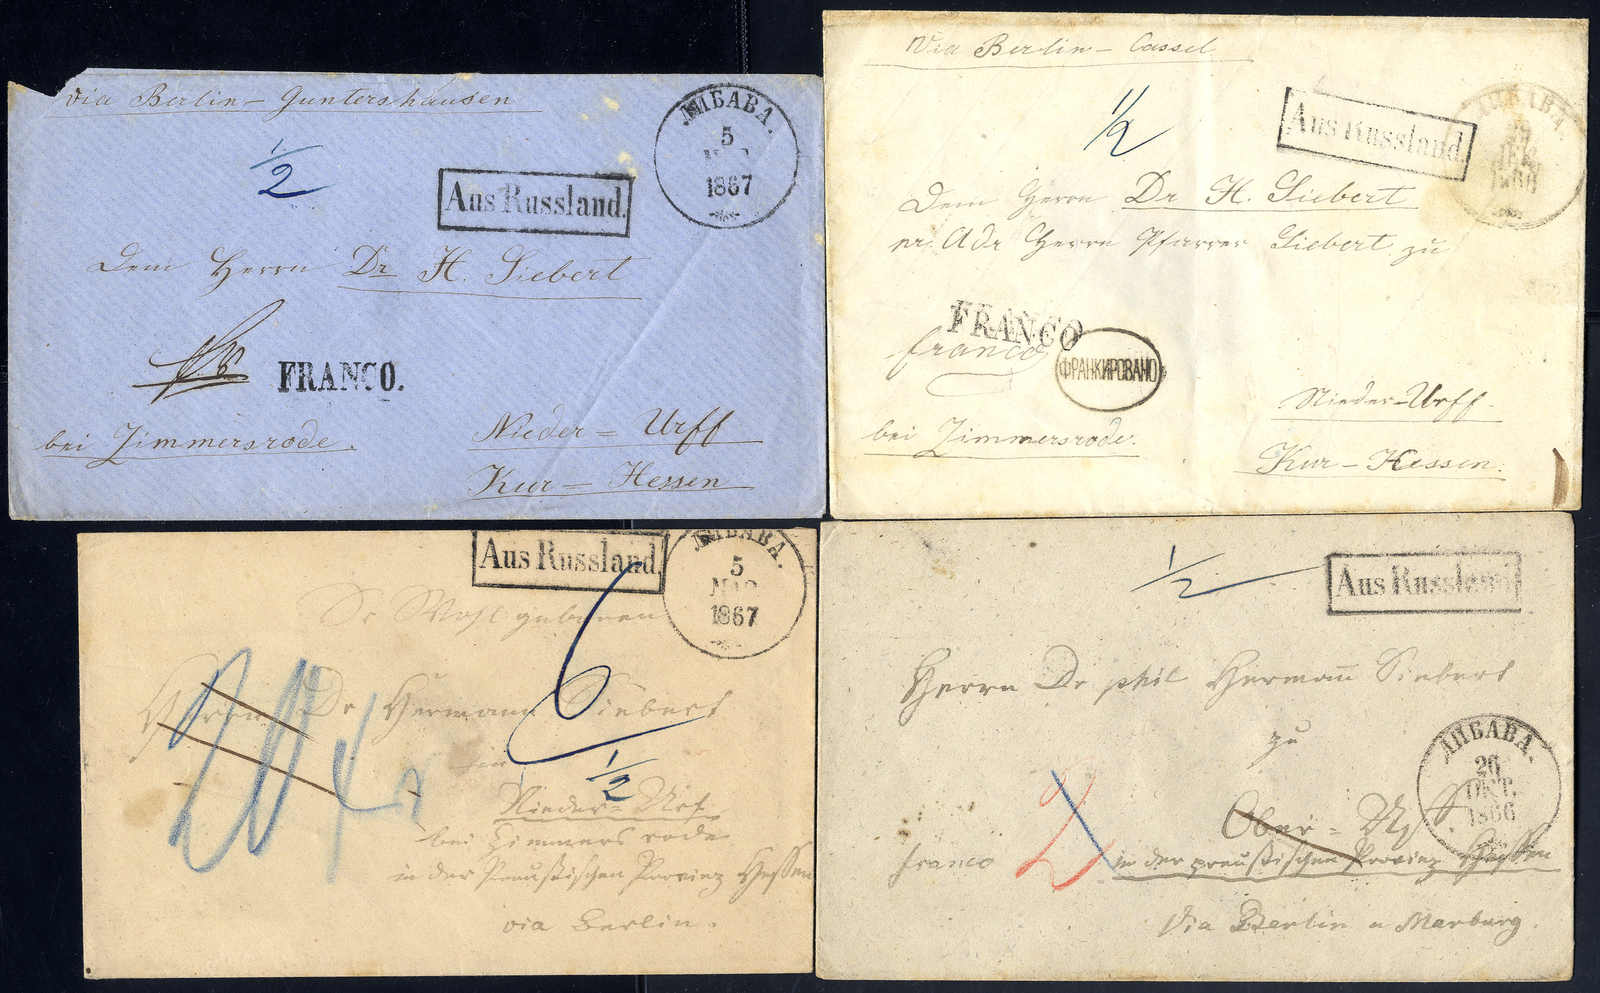 via Berlin - Guntershausen
ЛИБАВА.
5
1867
1/2
Aus Russland.
Dem Herrn Dr H. Siebert
FRANCO.
bei Zimmersrode.
Nieder = Urff
Kur = Hessen
Via Berlin - Cassel
1/2
Aus Russland.
ЛИБАВА.
ДЕК
1866
Dem Herrn Dr H. Siebert
pr. Adr Herrn Pfarrer Siebert zu
FRANCO
franco
ФРАНКИРОВАНО
Nieder-Urff.
bei Zimmersrode.
Kur - Hessen.
Aus Russland.
ЛИБАВА.
5
МАР
1867
Wohlgeboren
Herrn Dr Hermann Siebert
6
1/2
Nieder = Urf
bei Zimmersrode
in der Preußischen Provinz Hessen
via Berlin.
1/2
Aus Russland.
Herrn Dr phil Hermann Siebert
zu
ЛИБАВА.
26
ОКТ.
1866
Ober = Urff
franco
2
in der preußischen Provinz Hessen
Via Berlin u Marburg.